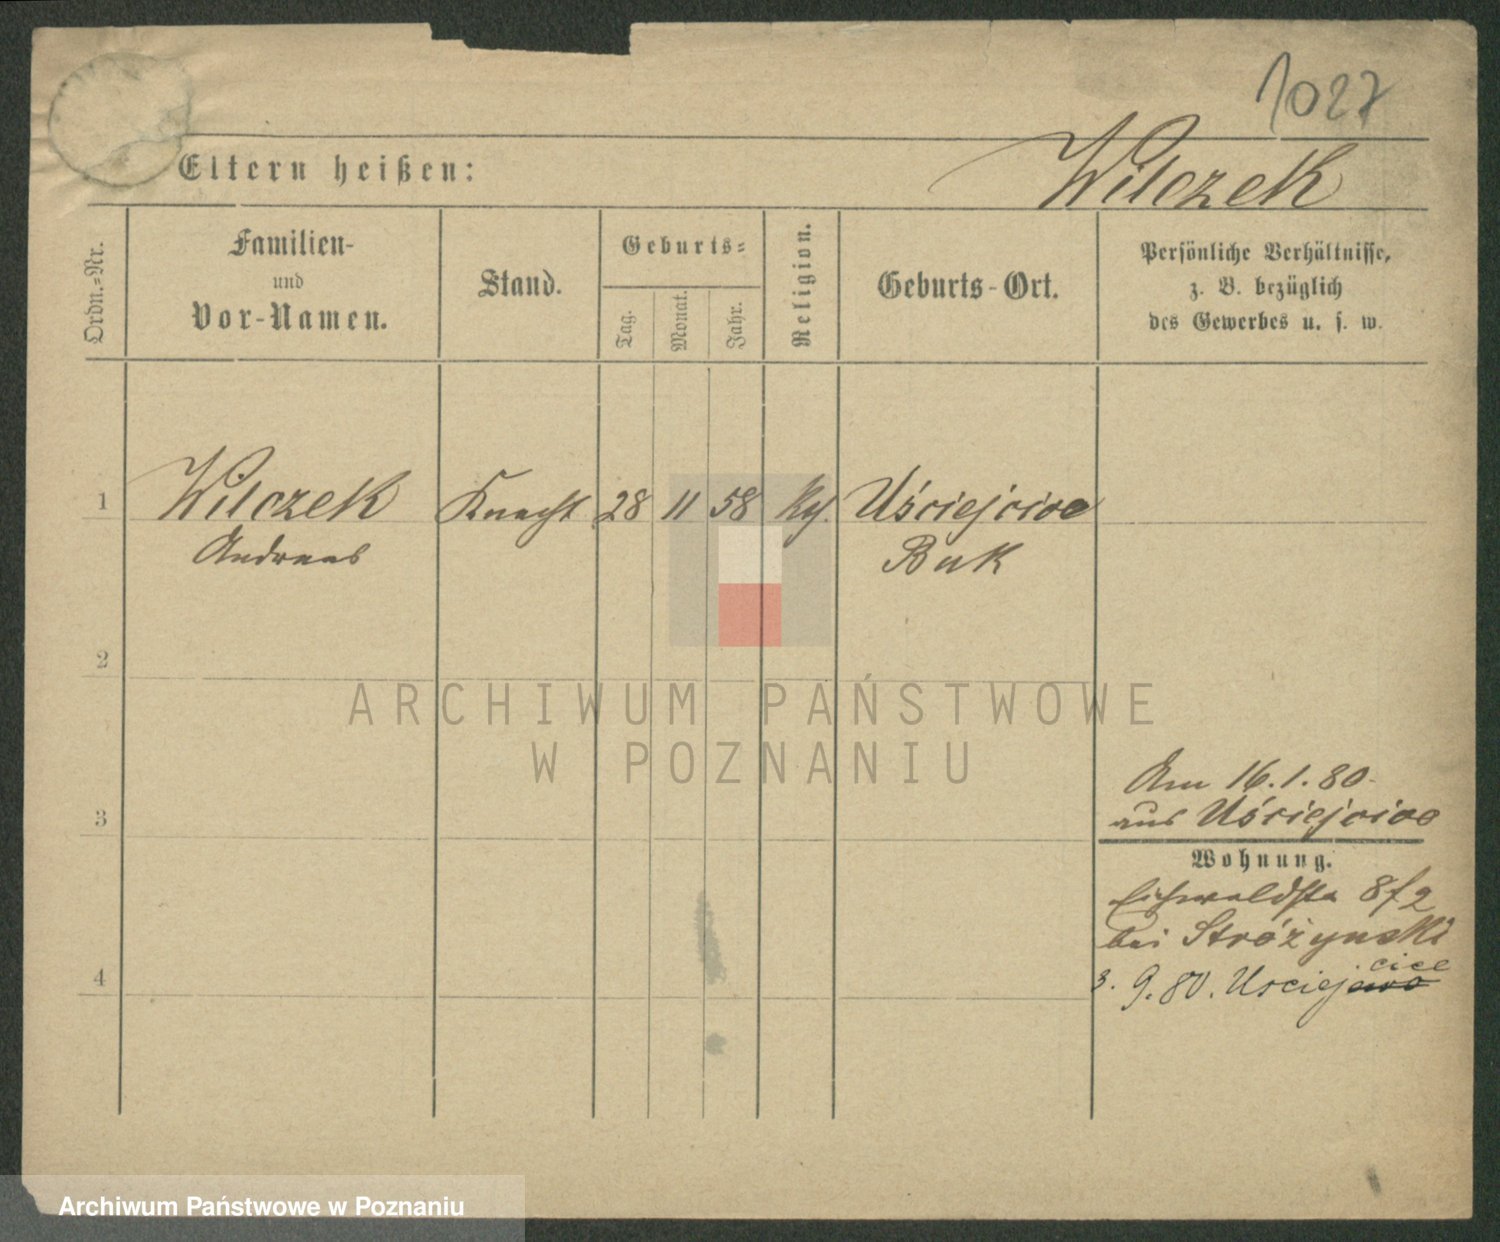 1027
Eltern heißen:
Wilczek
Ordn.-Nr.
Familien-
und
Vor-Namen.
Stand.
Geburts-
Tag.
Monat.
Jahr.
Religion.
Geburts-Ort.
Persönliche Verhältnisse,
z. B. bezüglich
des Gewerbes u. s. w.
1 Wilczek Knecht 28 11 58 Uściejcice
Andreas Buk
2
ARCHIWUM PAŃSTWOWE
W POZNANIU
Am 16.1.80
3 aus Uściejcice
Wohnung.
Eichwaldstr 8f2
bei Stróżynski
cice
4 3.9.80. Usciej
Archiwum Państwowe w Poznaniu